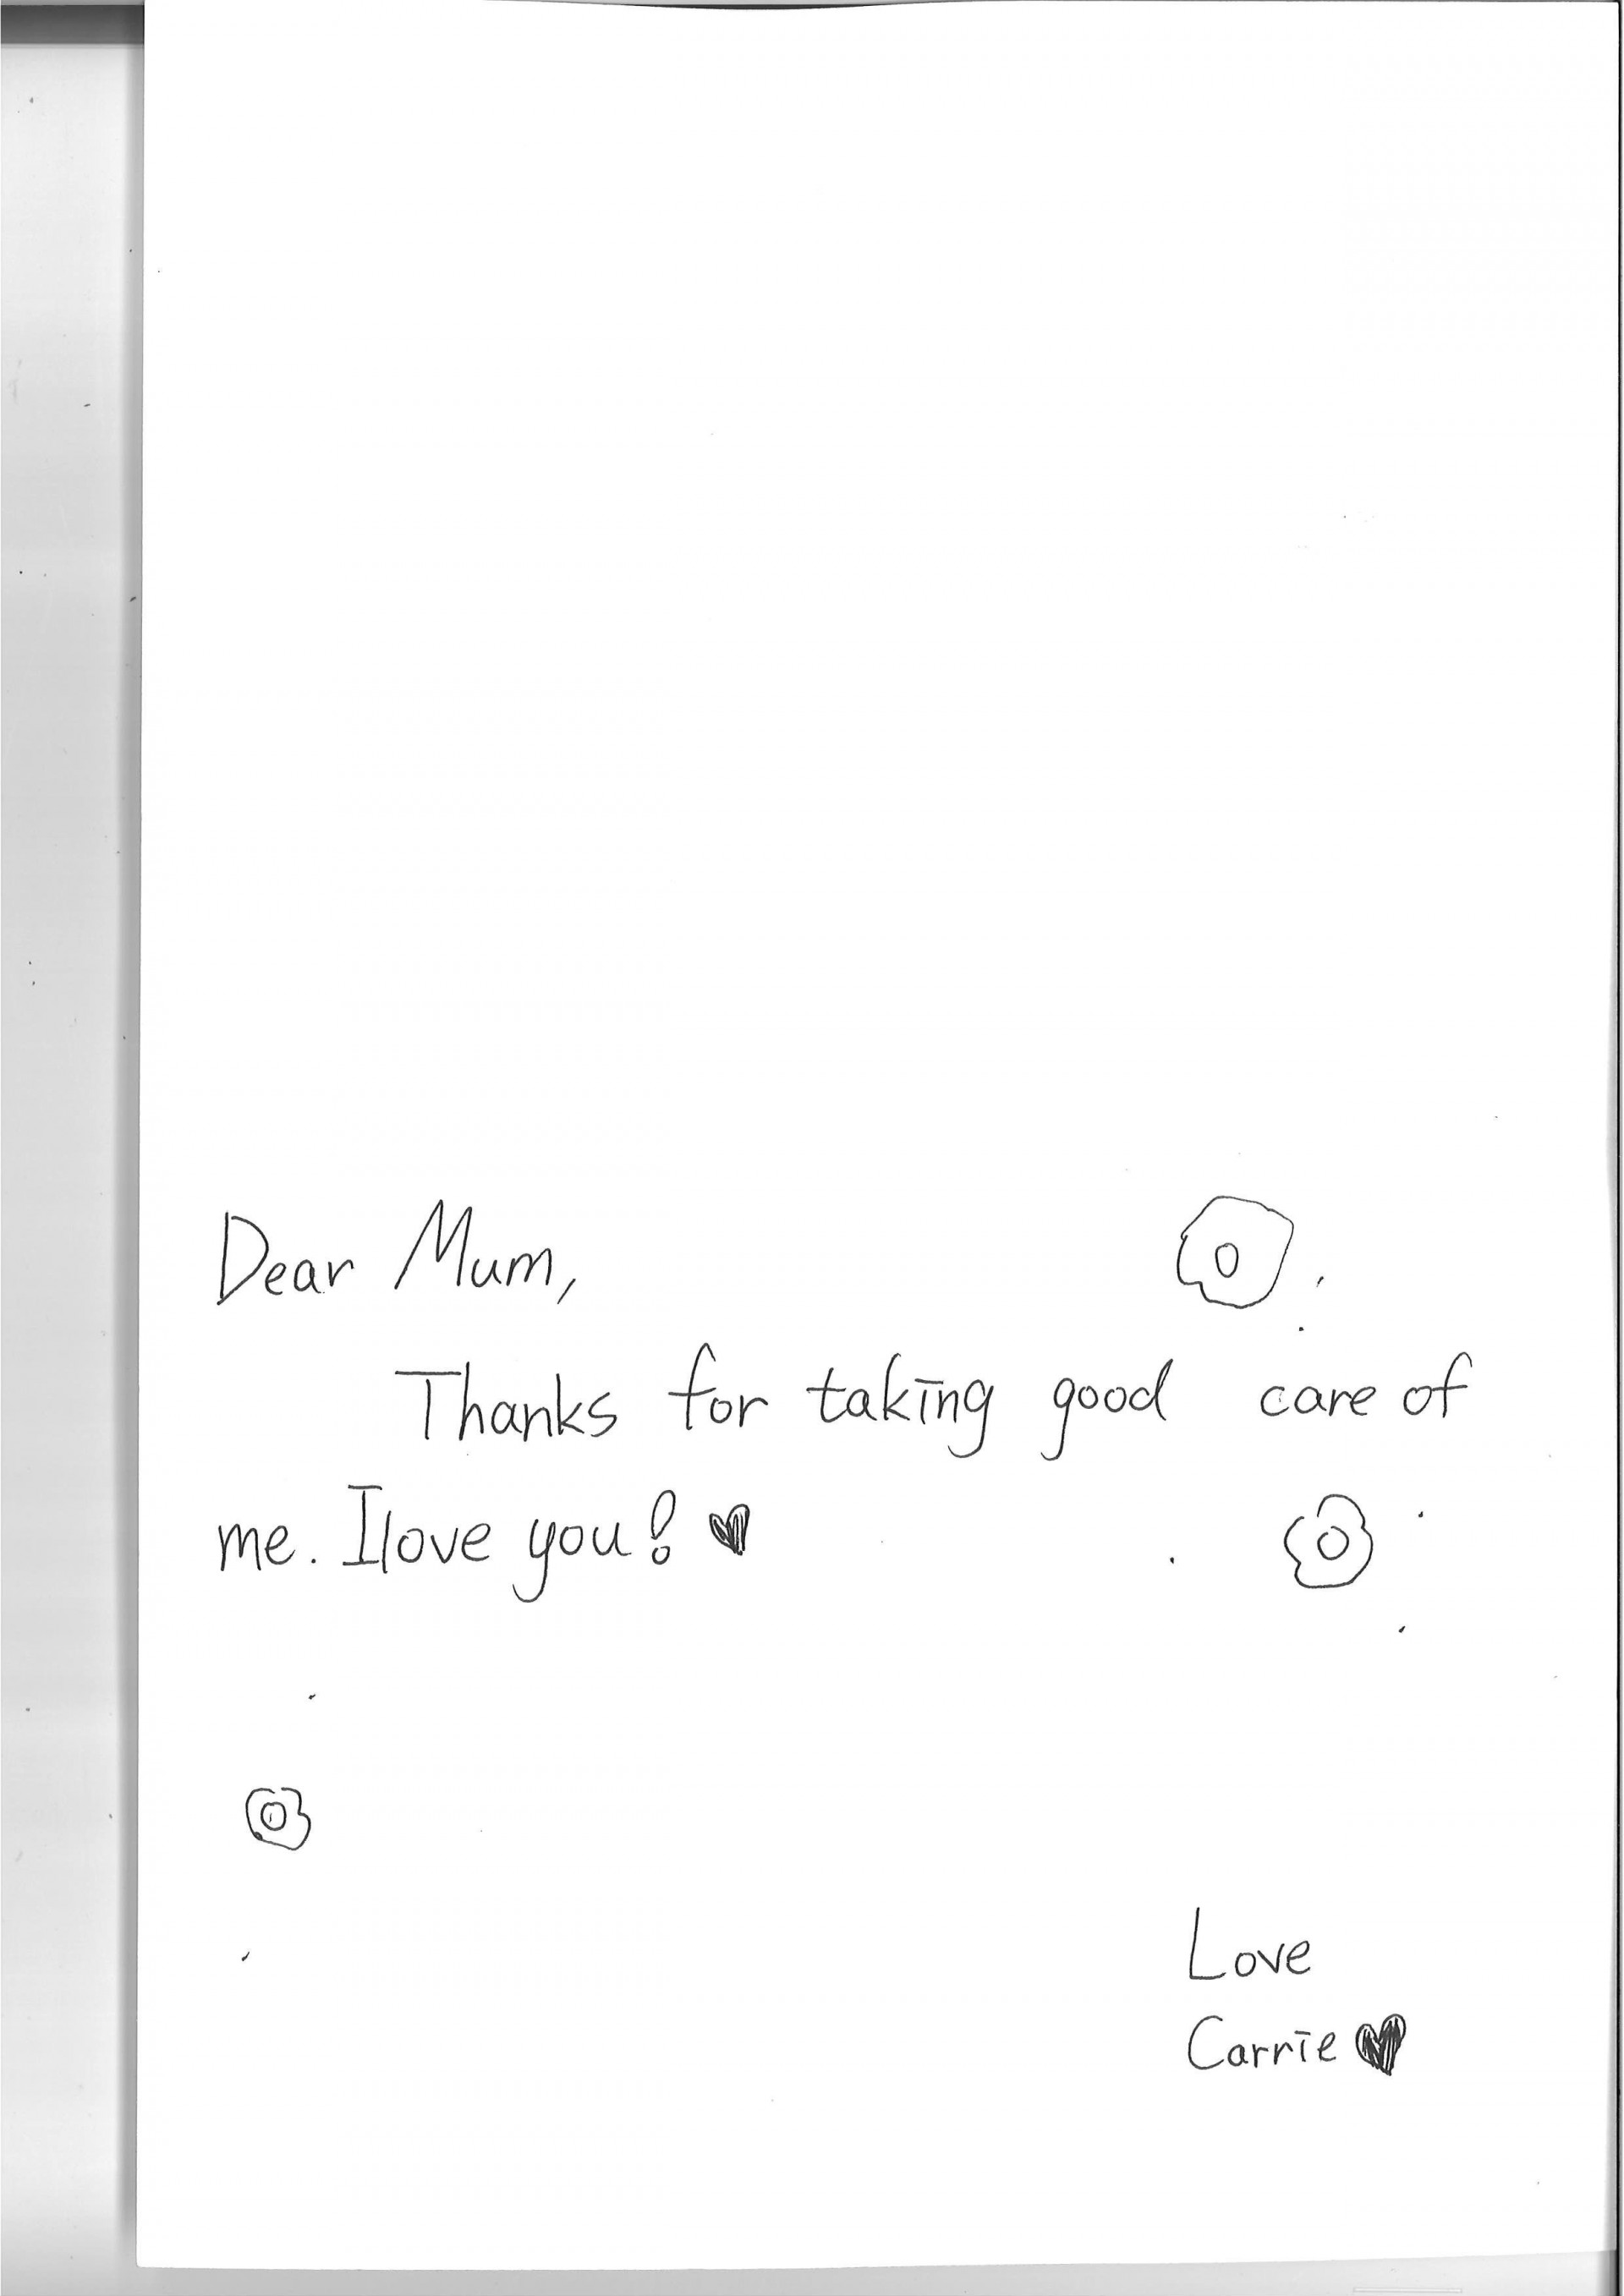 Dear Mum,
Thanks for taking good care of
me. I love you! ♥
Love
Carrie ♥